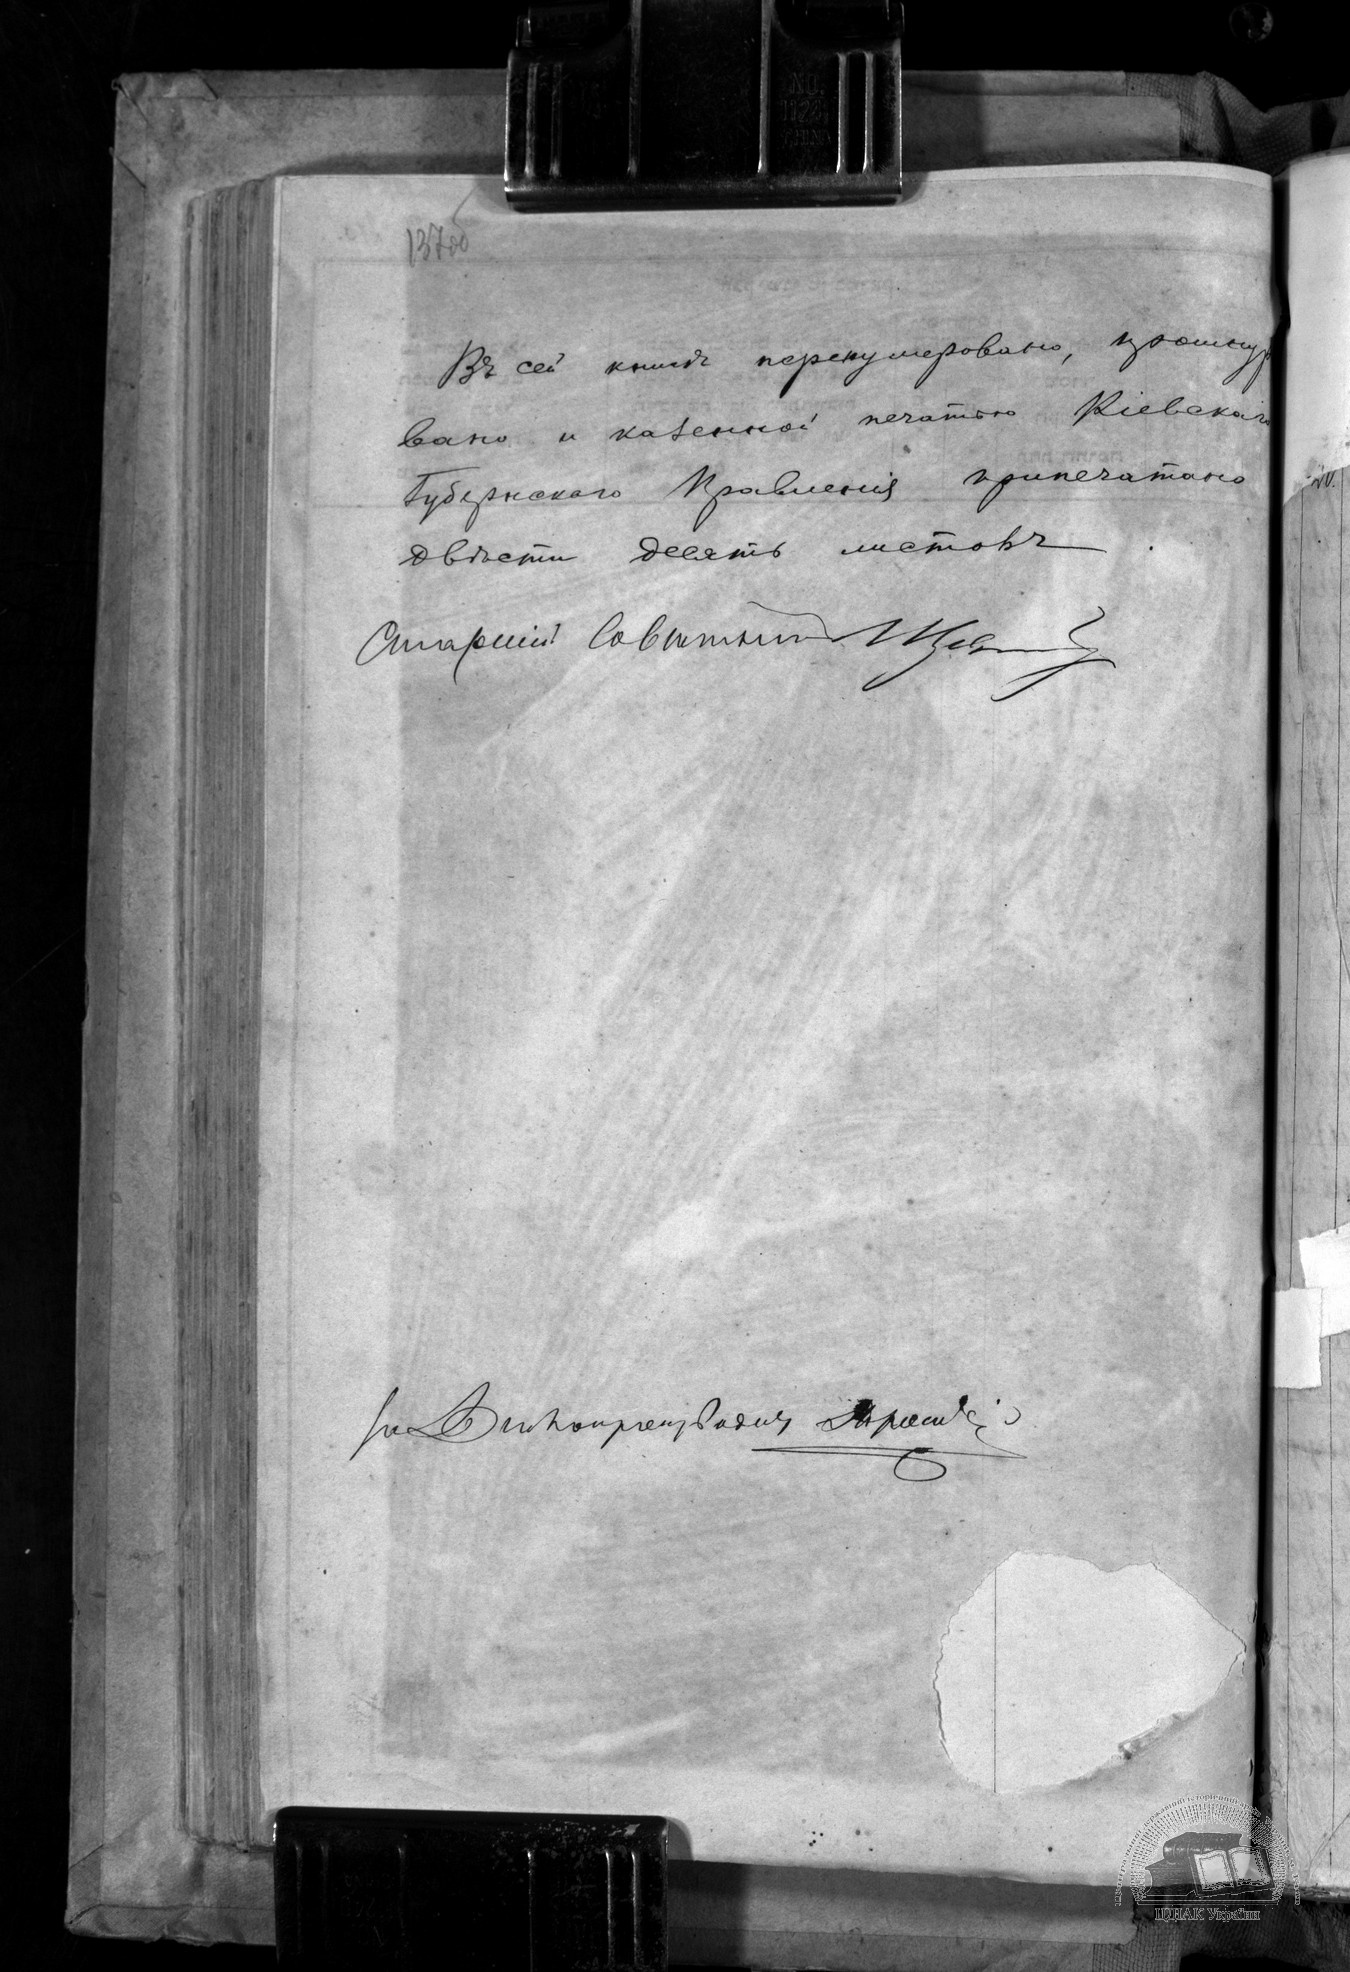 137об
Въ сей книгѣ перенумеровано, прошнуро
вано и казенной печатью Кіевскаго
Губернскаго Правленія припечатано
двѣсти десять листовъ
Старшій Совѣтникъ
За Дѣлопроизводителя
NO.
ЦДІАК України